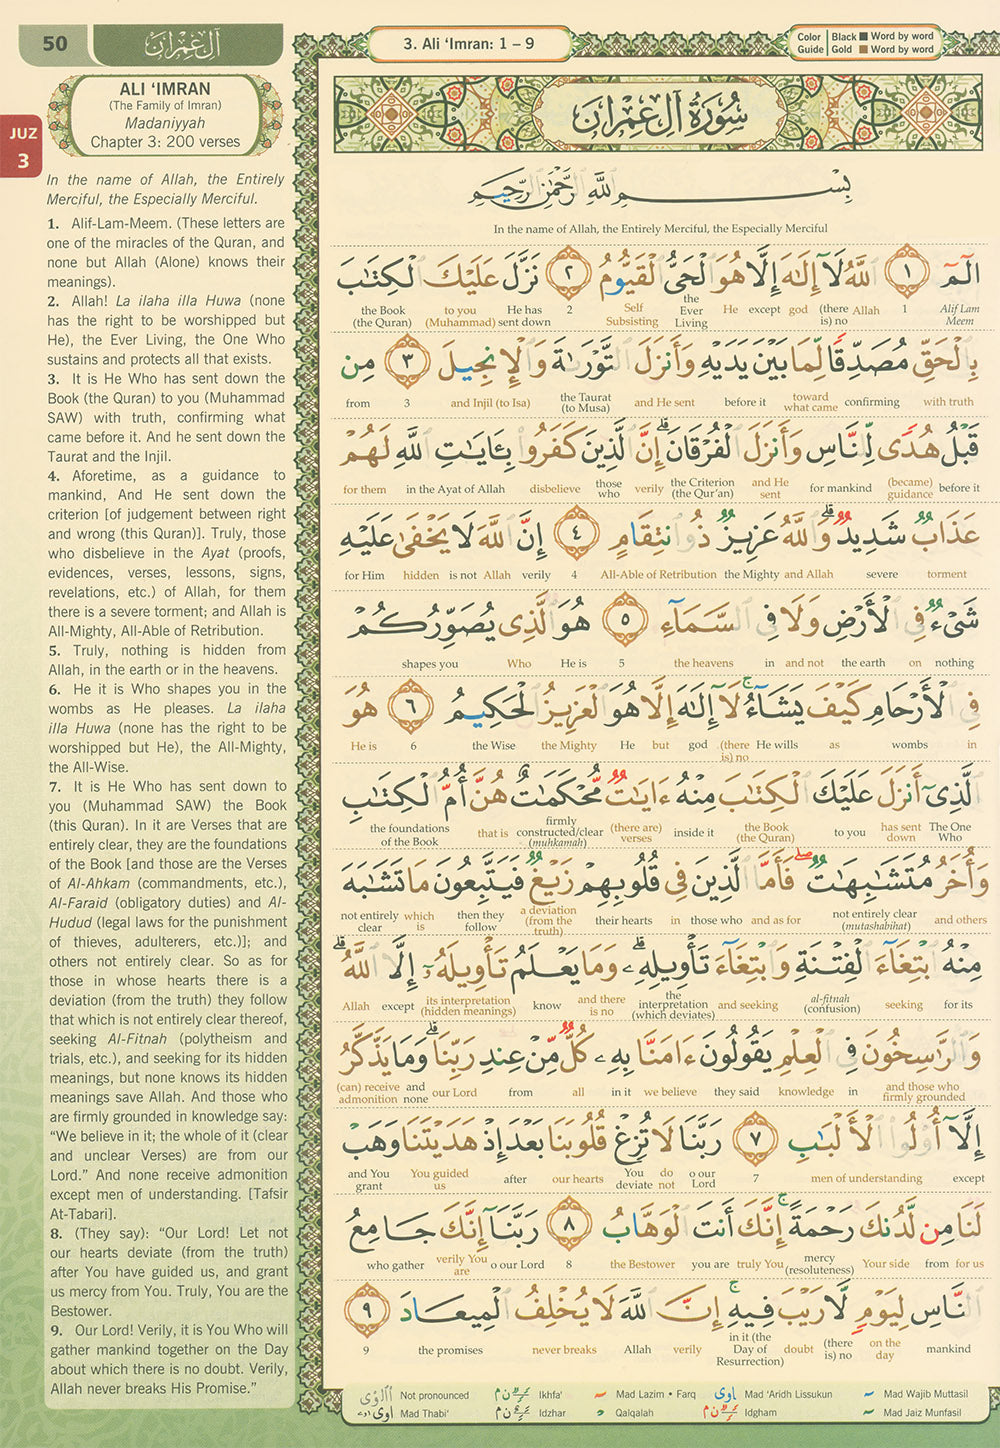 50
آل عمران
ALI ‘IMRAN
(The Family of Imran)
Madaniyyah
Chapter 3: 200 verses
JUZ
3
In the name of Allah, the Entirely
Merciful, the Especially Merciful.
1. Alif-Lam-Meem. (These letters are
one of the miracles of the Quran, and
none but Allah (Alone) knows their
meanings).
2. Allah! La ilaha illa Huwa (none
has the right to be worshipped but
He), the Ever Living, the One Who
sustains and protects all that exists.
3. It is He Who has sent down the
Book (the Quran) to you (Muhammad
SAW) with truth, confirming what
came before it. And he sent down the
Taurat and the Injil.
4. Aforetime, as a guidance to
mankind, And He sent down the
criterion [of judgement between right
and wrong (this Quran)]. Truly, those
who disbelieve in the Ayat (proofs,
evidences, verses, lessons, signs,
revelations, etc.) of Allah, for them
there is a severe torment; and Allah is
All-Mighty, All-Able of Retribution.
5. Truly, nothing is hidden from
Allah, in the earth or in the heavens.
6. He it is Who shapes you in the
wombs as He pleases. La ilaha
illa Huwa (none has the right to be
worshipped but He), the All-Mighty,
the All-Wise.
7. It is He Who has sent down to
you (Muhammad SAW) the Book
(this Quran). In it are Verses that are
entirely clear, they are the foundations
of the Book [and those are the Verses
of Al-Ahkam (commandments, etc.),
Al-Faraid (obligatory duties) and Al-
Hudud (legal laws for the punishment
of thieves, adulterers, etc.)]; and
others not entirely clear. So as for
those in whose hearts there is a
deviation (from the truth) they follow
that which is not entirely clear thereof,
seeking Al-Fitnah (polytheism and
trials, etc.), and seeking for its hidden
meanings, but none knows its hidden
meanings save Allah. And those who
are firmly grounded in knowledge say:
“We believe in it; the whole of it (clear
and unclear Verses) are from our
Lord.” And none receive admonition
except men of understanding. [Tafsir
At-Tabari].
8. (They say): “Our Lord! Let not
our hearts deviate (from the truth)
after You have guided us, and grant
us mercy from You. Truly, You are the
Bestower.
9. Our Lord! Verily, it is You Who will
gather mankind together on the Day
about which there is no doubt. Verily,
Allah never breaks His Promise.”
3. Ali ‘Imran: 1 – 9
Color Guide | Black Word by word
Gold Word by word
سُورَةُ آلِ عِمْرَان
بِسْمِ اللَّهِ الرَّحْمَٰنِ الرَّحِيمِ
In the name of Allah, the Entirely Merciful, the Especially Merciful
الٓمٓ ١ ٱللَّهُ لَآ إِلَٰهَ إِلَّا هُوَ ٱلْحَىُّ ٱلْقَيُّومُ ٢ نَزَّلَ عَلَيْكَ ٱلْكِتَٰبَ
the Book (the Quran) to you (Muhammad) He has sent down 2 Self Subsisting the Ever Living He except god (there is) no Allah 1 Alif Lam Meem
بِٱلْحَقِّ مُصَدِّقًا لِّمَا بَيْنَ يَدَيْهِ وَأَنزَلَ ٱلتَّوْرَىٰةَ وَٱلْإِنجِيلَ ٣ مِن
from 3 and Injil (to Isa) the Taurat (to Musa) and He sent before it toward what came confirming with truth
قَبْلُ هُدًى لِّلنَّاسِ وَأَنزَلَ ٱلْفُرْقَانَ ۗ إِنَّ ٱلَّذِينَ كَفَرُوا۟ بِـَٔايَٰتِ ٱللَّهِ لَهُمْ
for them in the Ayat of Allah disbelieve those who verily the Criterion (the Qur’an) and He sent for mankind (became) guidance before it
عَذَابٌ شَدِيدٌ ۗ وَٱللَّهُ عَزِيزٌ ذُو ٱنتِقَامٍ ٤ إِنَّ ٱللَّهَ لَا يَخْفَىٰ عَلَيْهِ
for Him hidden is not Allah verily 4 All-Able of Retribution the Mighty and Allah severe torment
شَىْءٌ فِى ٱلْأَرْضِ وَلَا فِى ٱلسَّمَآءِ ٥ هُوَ ٱلَّذِى يُصَوِّرُكُمْ
shapes you Who He is 5 the heavens in and not the earth on nothing
فِى ٱلْأَرْحَامِ كَيْفَ يَشَآءُ ۚ لَآ إِلَٰهَ إِلَّا هُوَ ٱلْعَزِيزُ ٱلْحَكِيمُ ٦ هُوَ
He is 6 the Wise the Mighty He but god (there is) no He wills as wombs in
ٱلَّذِىٓ أَنزَلَ عَلَيْكَ ٱلْكِتَٰبَ مِنْهُ ءَايَٰتٌ مُّحْكَمَٰتٌ هُنَّ أُمُّ ٱلْكِتَٰبِ
the foundations of the Book that is firmly constructed/clear (muhkamah) (there are) verses inside it the Book (the Quran) to you has sent down The One Who
وَأُخَرُ مُتَشَٰبِهَٰتٌ ۖ فَأَمَّا ٱلَّذِينَ فِى قُلُوبِهِمْ زَيْغٌ فَيَتَّبِعُونَ مَا تَشَٰبَهَ
not entirely clear which is then they follow a deviation (from the truth) their hearts in those who and as for not entirely clear (mutashabihat) and others
مِنْهُ ٱبْتِغَآءَ ٱلْفِتْنَةِ وَٱبْتِغَآءَ تَأْوِيلِهِۦ ۗ وَمَا يَعْلَمُ تَأْوِيلَهُۥٓ إِلَّا ٱللَّهُ ۗ
Allah except its interpretation (hidden meanings) know and there is no the interpretation (which deviates) and seeking al-fitnah (confusion) seeking for its
وَٱلرَّٰسِخُونَ فِى ٱلْعِلْمِ يَقُولُونَ ءَامَنَّا بِهِۦ كُلٌّ مِّنْ عِندِ رَبِّنَا ۗ وَمَا يَذَّكَّرُ
(can) receive admonition and none our Lord from all in it we believe they said knowledge in and those who firmly grounded
إِلَّآ أُو۟لُوا۟ ٱلْأَلْبَٰبِ ٧ رَبَّنَا لَا تُزِغْ قُلُوبَنَا بَعْدَ إِذْ هَدَيْتَنَا وَهَبْ
and You grant You guided us after our hearts You deviate do not o our Lord 7 men of understanding except
لَنَا مِن لَّدُنكَ رَحْمَةً ۚ إِنَّكَ أَنتَ ٱلْوَهَّابُ ٨ رَبَّنَآ إِنَّكَ جَامِعُ
who gather verily You are o our Lord 8 the Bestower you are truly You mercy (resoluteness) Your side from for us
ٱلنَّاسِ لِيَوْمٍ لَّا رَيْبَ فِيهِ ۚ إِنَّ ٱللَّهَ لَا يُخْلِفُ ٱلْمِيعَادَ ٩
9 the promises never breaks Allah verily in it (the Day of Resurrection) doubt (there is) no on the day mankind
Not pronounced Ikhfa’ Mad Lazim • Farq Mad ‘Aridh Lissukun Mad Wajib Muttasil
Mad Thabi’ Idzhar Qalqalah Idgham Mad Jaiz Munfasil